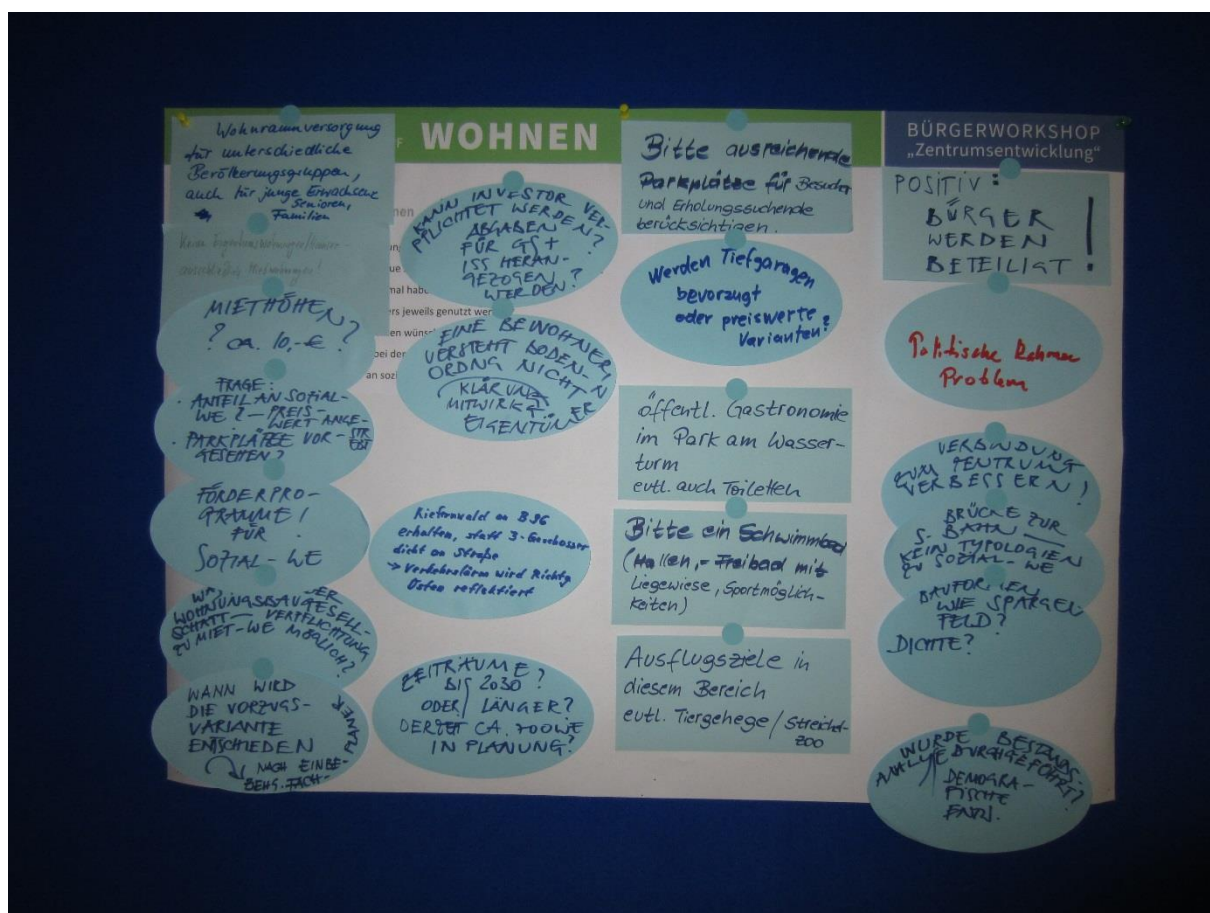 WOHNEN
BÜRGERWORKSHOP
„Zentrumsentwicklung“
Wohnraumversorgung
für unterschiedliche
Bevölkerungsgruppen,
auch für junge Erwachsene
Senioren,
Familien
MIETHÖHE?
? CA. 10,-€ ?
FRAGE:
ANTEIL AN SOZIAL-
WE? – PREIS-
WERT ANGE-
STREBT
PARKPLÄTZE VOR-
GESEHEN?
FÖRDERPRO-
GRAMME!
FÜR
SOZIAL-WE
WOHNUNGSBAUGESELL-
SCHAFT – VERPFLICHTUNG
ZU MIET-WE MÖGLICH?
WANN WIRD
DIE VORZUGS-
VARIANTE
ENTSCHIEDEN
NACH EINBE-
ZIEHG. FACH-
PLANER
KANN INVESTOR VER-
PFLICHTET WERDEN?
ABGABEN
FÜR GS+
ISS HERAN-
GEZOGEN
WERDEN?
mal hab
ers jeweils genutzt wer
en wünsc
bei der
an sozi
EINE BEWOHNERIN
VERSTEHT BODEN-
ORDNG NICHT
KLÄRUNG
MITWIRKG.
EIGENTÜMER
Kiefernwald an B96
erhalten, statt 3-Geschosser
dicht an Straße
→ Verkehrslärm wird Richtg
Osten reflektiert
ZEITRÄUME?
BIS 2030?
ODER LÄNGER?
DERZEIT CA. 700 WE
IN PLANUNG?
Bitte ausreichende
Parkplätze für Besucher
und Erholungssuchende
berücksichtigen.
Werden Tiefgaragen
bevorzugt
oder preiswerte
Varianten?
öffentl. Gastronomie
im Park am Wasser-
turm
evtl. auch Toiletten
Bitte ein Schwimmbad
(Hallen,- Freibad mit
Liegewiese, Sportmöglich-
keiten)
Ausflugsziele in
diesem Bereich
evtl. Tiergehege / Streichel-
zoo
POSITIV:
BÜRGER
WERDEN
BETEILIGT !
Politische Rahmen
Problem
VERBINDUNG
ZUM ZENTRUM
VERBESSERN!
BRÜCKE ZUR
S-BAHN
KEIN TYPOLOGIEN
ZU SOZIAL-WE
BAUFORMEN
WIE SPARGEL
FELD?
DICHTE?
WURDE BESTANDS-
ANALYSE DURCHGEFÜHRT?
DEMOGRA-
FISCHE
ENTW.